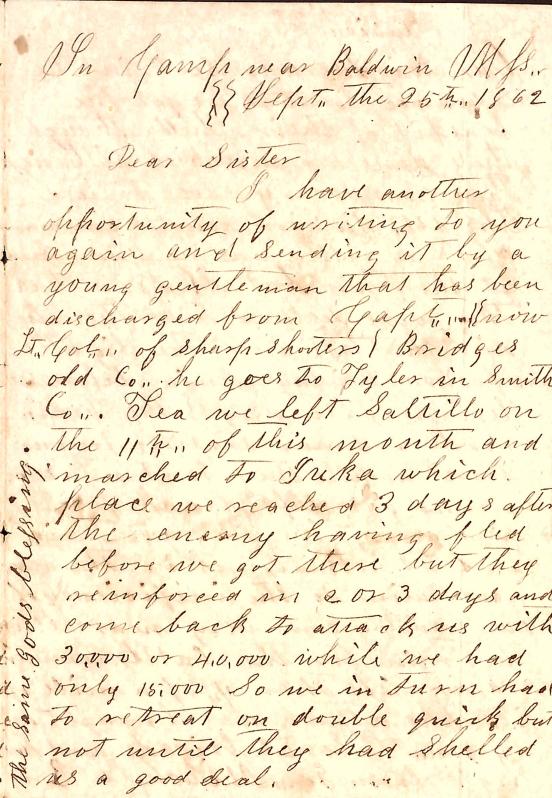 In Camp near Baldwin Miss.
Sept,, the 25th,, 1862
Dear Sister
I have another
opportunity of writing to you
again and sending it by a
young gentleman that has been
discharged from Capt,,..{now
Lt,, Col,, of sharpshooters} Bridges
old Co,,. he goes to Tyler in Smith
Co,,. Tex we left Saltillo on
the 11th,, of this month and
marched to Iuka which
place we reached 3 days after
the enemy having fled
before we got there but they
reinforced in 2 or 3 days and
come back to attack us with
30,000 or 40,000 while we had
only 15,000 So we in turn had
to retreat on double quick but
not until they had shelled
us a good deal.
the same Gods blessing.